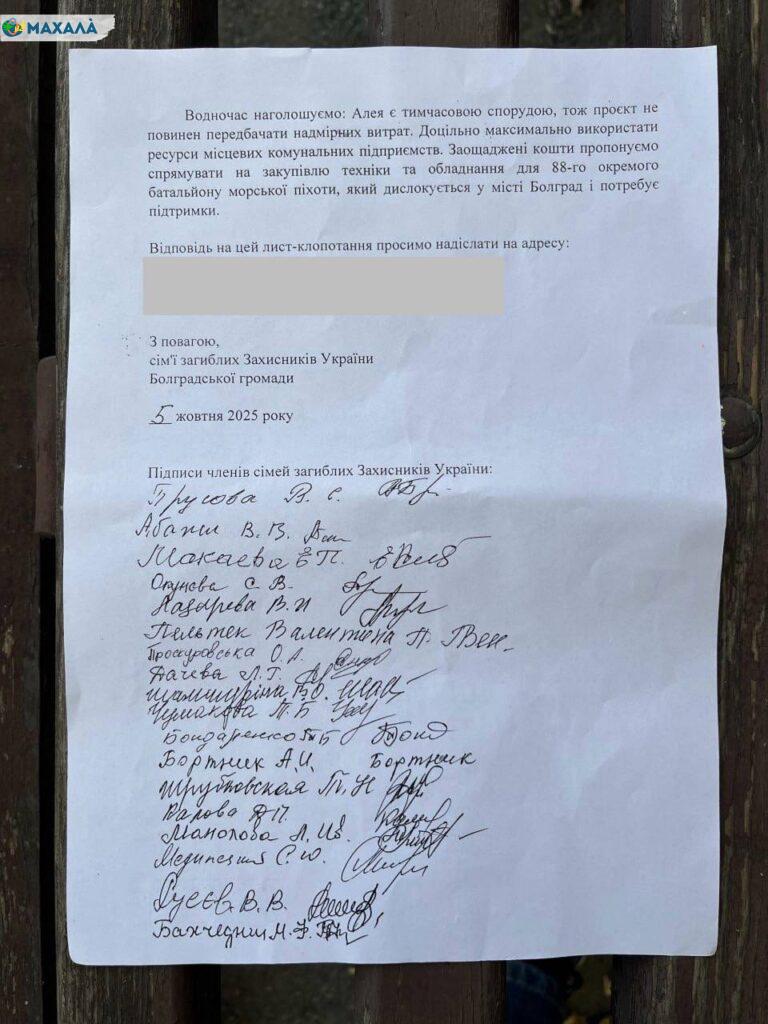 МАХАЛА
Водночас наголошуємо: Алея є тимчасовою спорудою, тож проєкт не
повинен передбачати надмірних витрат. Доцільно максимально використати
ресурси місцевих комунальних підприємств. Заощаджені кошти пропонуємо
спрямувати на закупівлю техніки та обладнання для 88-го окремого
батальйону морської піхоти, який дислокується у місті Болград і потребує
підтримки.
Відповідь на цей лист-клопотання просимо надіслати на адресу:
З повагою,
сім'ї загиблих Захисників України
Болградської громади
5 жовтня 2025 року
Підписи членів сімей загиблих Захисників України:
Трусова В. С.
Абажи В. В.
Макаева Е П.
С. В.
Назарева В. И
Пельтек Валентина П.
Проскуровська О. А.
Дачева Л. Г.
Шамшуріна В. О.
Чумакова Т. Б
Бондаренко Т Б Бонд
Бортник А. И. Бортник
Т. Н
Калова Д П.
Манолова Л. Ив.
С. Ю.
Гусєв. В. В.
М. Ф.